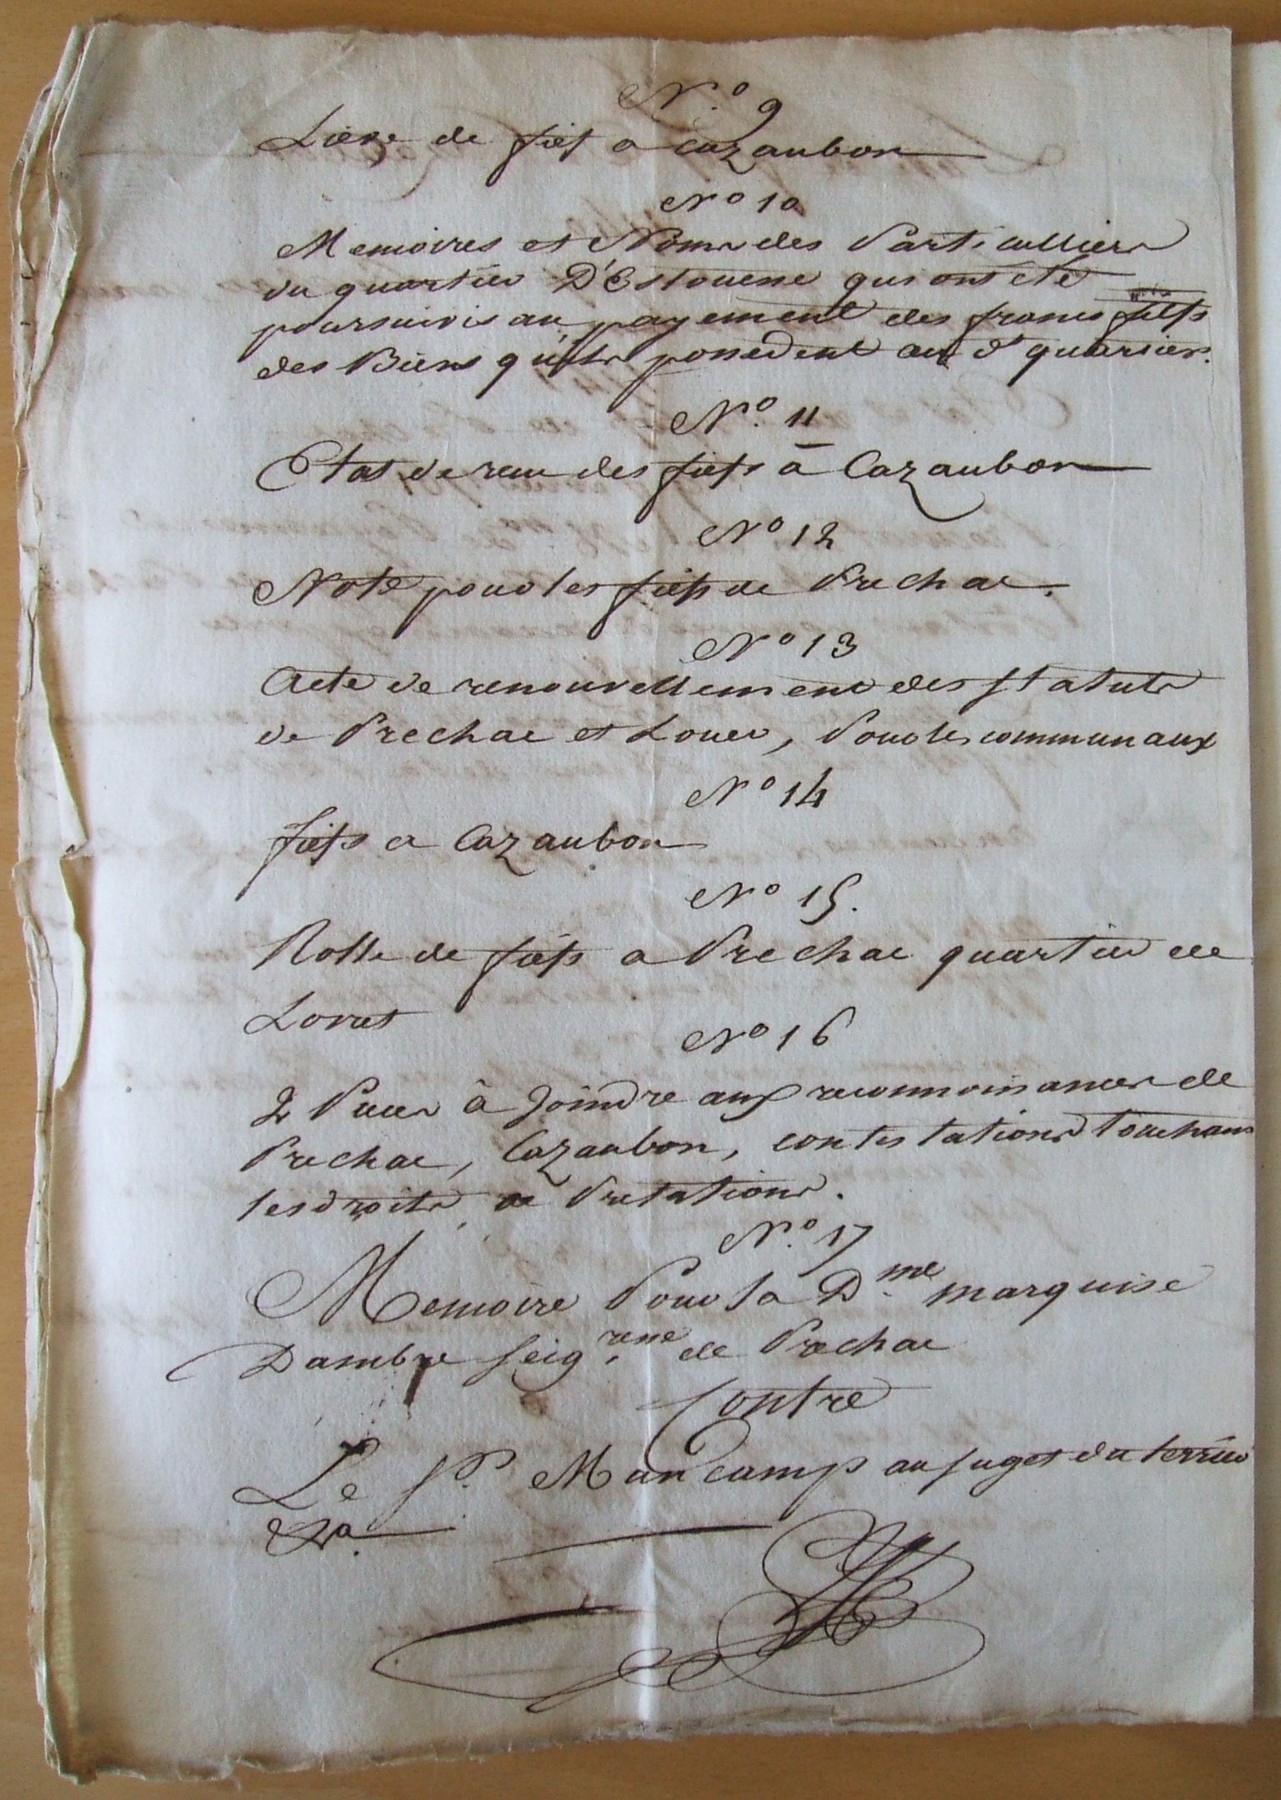 N.º 9
Lieve de fiefs a cazaubon
Nº 10
Memoires et Noms des Particulliers
du quartier D'Estouene qui ont été
poursuivis au payement des francs fiefs
des Biens qu'ils possedent au dt quartier.
Nº. 11
Etat de veu des fiefs à Cazaubon
Nº 12
Note pour les fiefs de Prechac.
Nº 13
Acte de renouvellement des statuts
de Prechac et Loues, Pour les communaux
Nº 14
fiefs a Cazaubon
Nº 15.
Rolle de fiefs a Prechac quartier de
Loret
Nº 16
2 Pieces à Joindre aux reconnoissances de
Prechac, Cazaubon, contestations touchant
les droits de Prestations.
N.º 17
Memoire Pour la D.me marquise
Dambre seig.resse de Prechac
Contre
Le Sr. Mancamp au suget du terrier
&a.